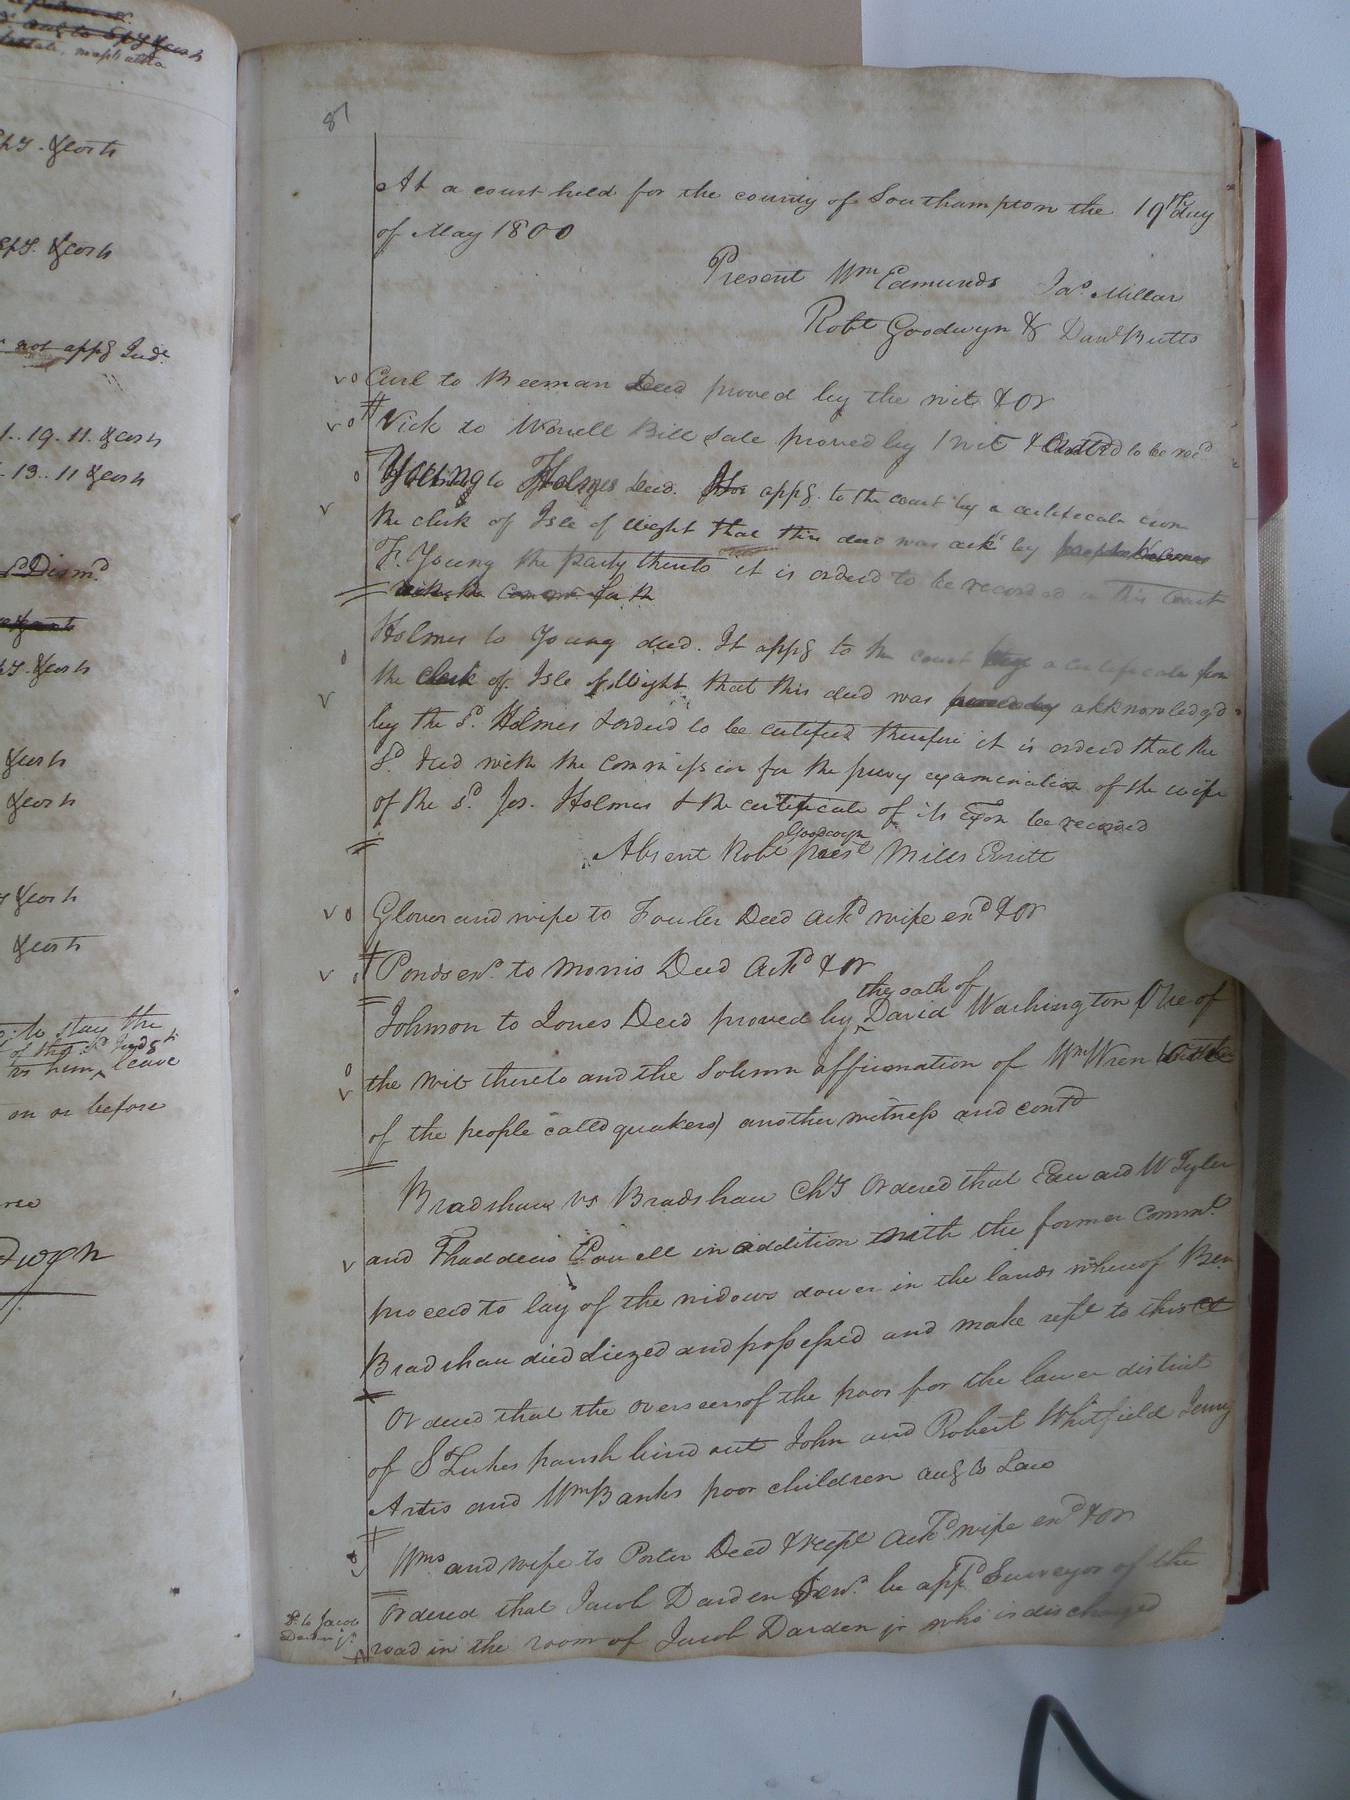 87
At a court held for the county of Southampton the 19th day
of May 1800
Present Wm Edmunds Jas Millar
Robt Goodwyn & Danl Butts
Curl to Beeman Deed proved by the wit & or
Vick to Worrell Bill Sale proved by 1 wit & to be recd
Young to Holmes Deed. appg. to the court by a certificate from
the clerk of Isle of Wight that this deed was ackd by
F. Young the party thereto it is ordered to be recorded in this Court
Holmes to Young deed. It appg to the court by a certificate from
the clerk of Isle of Wight that this deed was proved by acknowledgd
by the sd. Holmes & ordered to be certified therefore it is ordered that the
sd. deed with the Commission for the privy examination of the wife
of the sd. Jos. Holmes & the certificate of its Exon be recorded
Goodwyn
Absent Robt prest Mills Eritt
Glover and wife to Fowler Deed Ackd wife exd & or
Ponds exr. to Morris Deed Ackd & or
the oath of
Johnson to Jones Deed proved by David Washington One of
the wits thereto and the Solemn affirmation of Wm Wren
of the people calld quakers) another witness and contd
Bradshaw vs Bradshaw Chy Ordered that Edward W Tyler
and Thaddeus Powell in addition with the former Commrs
proceed to lay of the widows dower in the lands whereof Ben
Bradshaw died siezed and possessed and make rept to this Ct
Ordered that the overseers of the poor for the lower district
of St Lukes parish bind out John and Robert Whitfield Jenny
Artis and Wm Banks poor children accg to Law
Wms and wife to Porter Deed & recpt Ackd wife exd & or
Ordered that Jacob Darden Senr. be appd Surveyor of the
road in the room of Jacob Darden jr who is discharged
to Jacob
Darden jr.
& costs
& costs
not appg Judt
1..19.11. & costs
13..11 & costs
Dismd
& costs
& costs
& costs
& costs
& costs
to stay the
leave
on or before